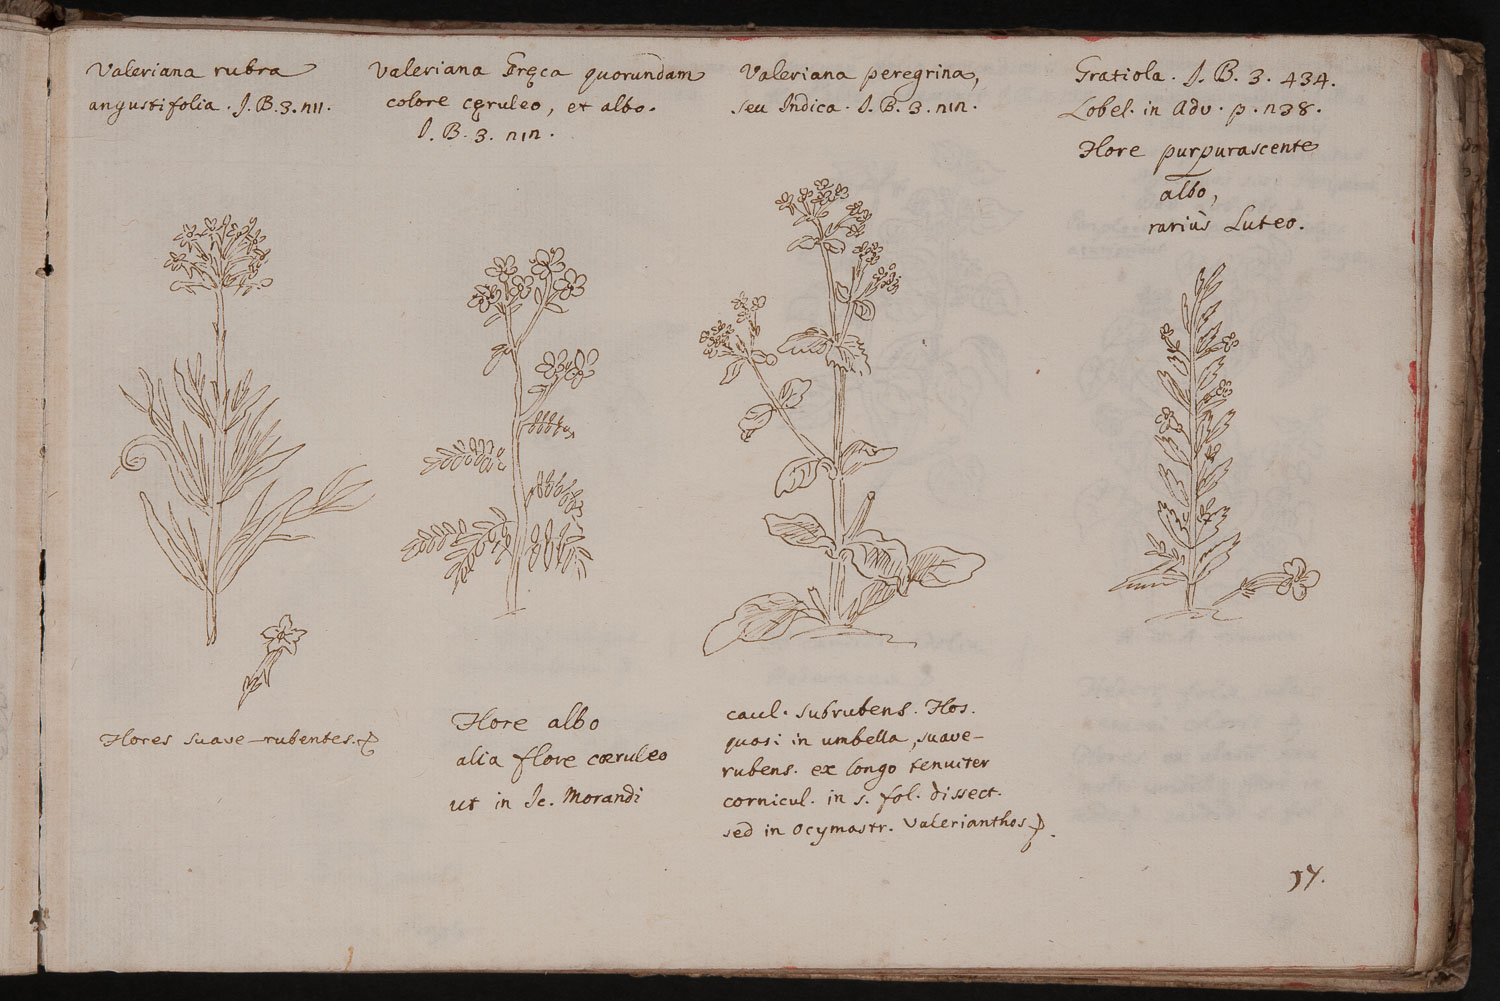 Valeriana rubra
angustifolia. J. B. 3. n11.
Valeriana Gręca quorundam
colore cęruleo, et albo.
J. B. 3. n1n.
Valeriana peregrina,
seu Indica. J. B. 3. n1n.
Gratiola. J. B. 3. 434.
Lobel. in Adv. p. n38.
Flore purpurascente
albo,
rariùs Luteo.
Flores suave-rubentes.
Flore albo
alia flore cœruleo
ut in Ic. Morandi
caul. subrubens. Flos.
quasi in umbella, suave-
rubens. ex longo tenuiter
cornicul. in 5. fol. dissect.
sed in Ocymastr. Valerianthos